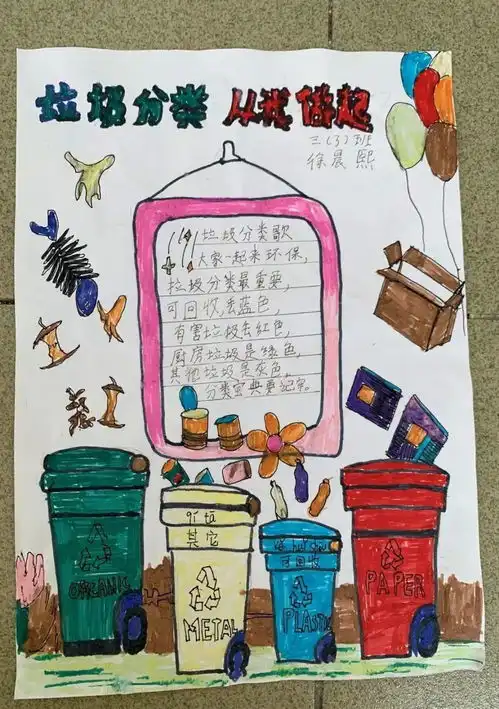 垃圾分类 从我做起
三(3)班
徐晨熙
垃圾分类歌
大家一起来环保,
垃圾分类最重要,
可回收,丢蓝色,
有害垃圾丢红色,
厨房垃圾是绿色,
其他垃圾是灰色。
分类宝典要记牢。
其它
可回收
ORGANIC
METAL
PLASTIC
PAPER